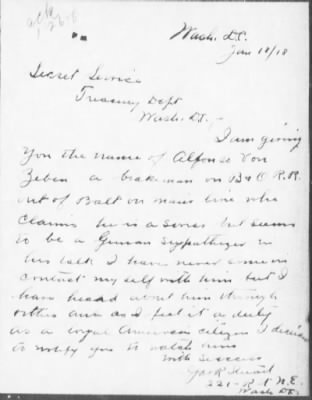 ack
1-26-8
Wash. D.C.
Jan 18/18
Secret Service
Treasury Dept
Wash. D.C. -
I am giving
you the name of Alfonse Von
Zeben a brakeman on B & O R.R.
out of Balt on main line who
claims he is a Swiss but seems
to be a German sympathizer in
his talk I have never come in
contact my self with him but I
have heard about him through
others and as I feel it a duty
as a loyal American citizen I desire
to notify you to watch him
with success
221 - R St N.E.
Wash D.C.